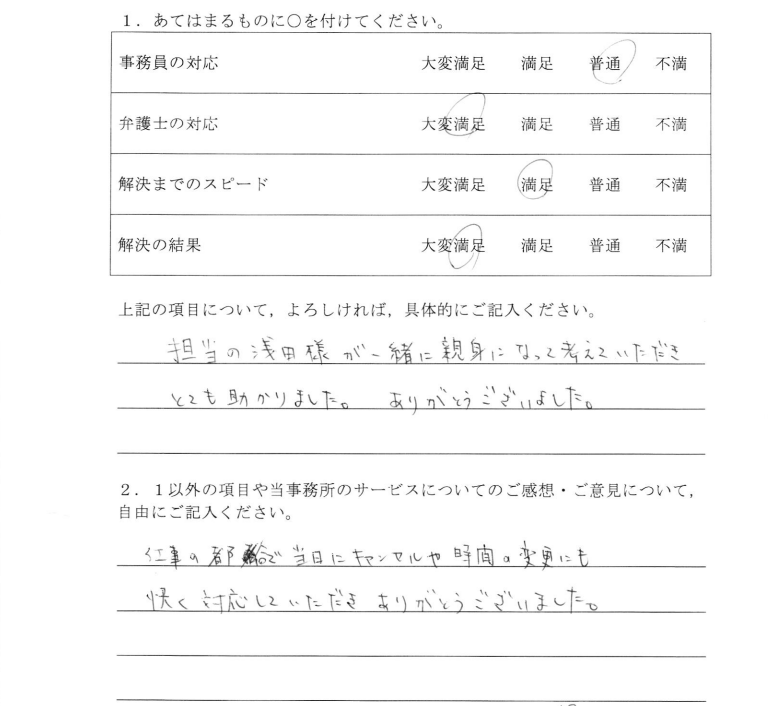 1．あてはまるものに○を付けてください。
事務員の対応 大変満足 満足 普通 不満
弁護士の対応 大変満足 満足 普通 不満
解決までのスピード 大変満足 満足 普通 不満
解決の結果 大変満足 満足 普通 不満
上記の項目について，よろしければ，具体的にご記入ください。
担当の浅田様が一緒に親身になって考えていただき
とても助かりました。 ありがとうございました。
2．1以外の項目や当事務所のサービスについてのご感想・ご意見について，
自由にご記入ください。
仕事の都合で当日にキャンセルや時間の変更にも
快く対応していただきありがとうございました。